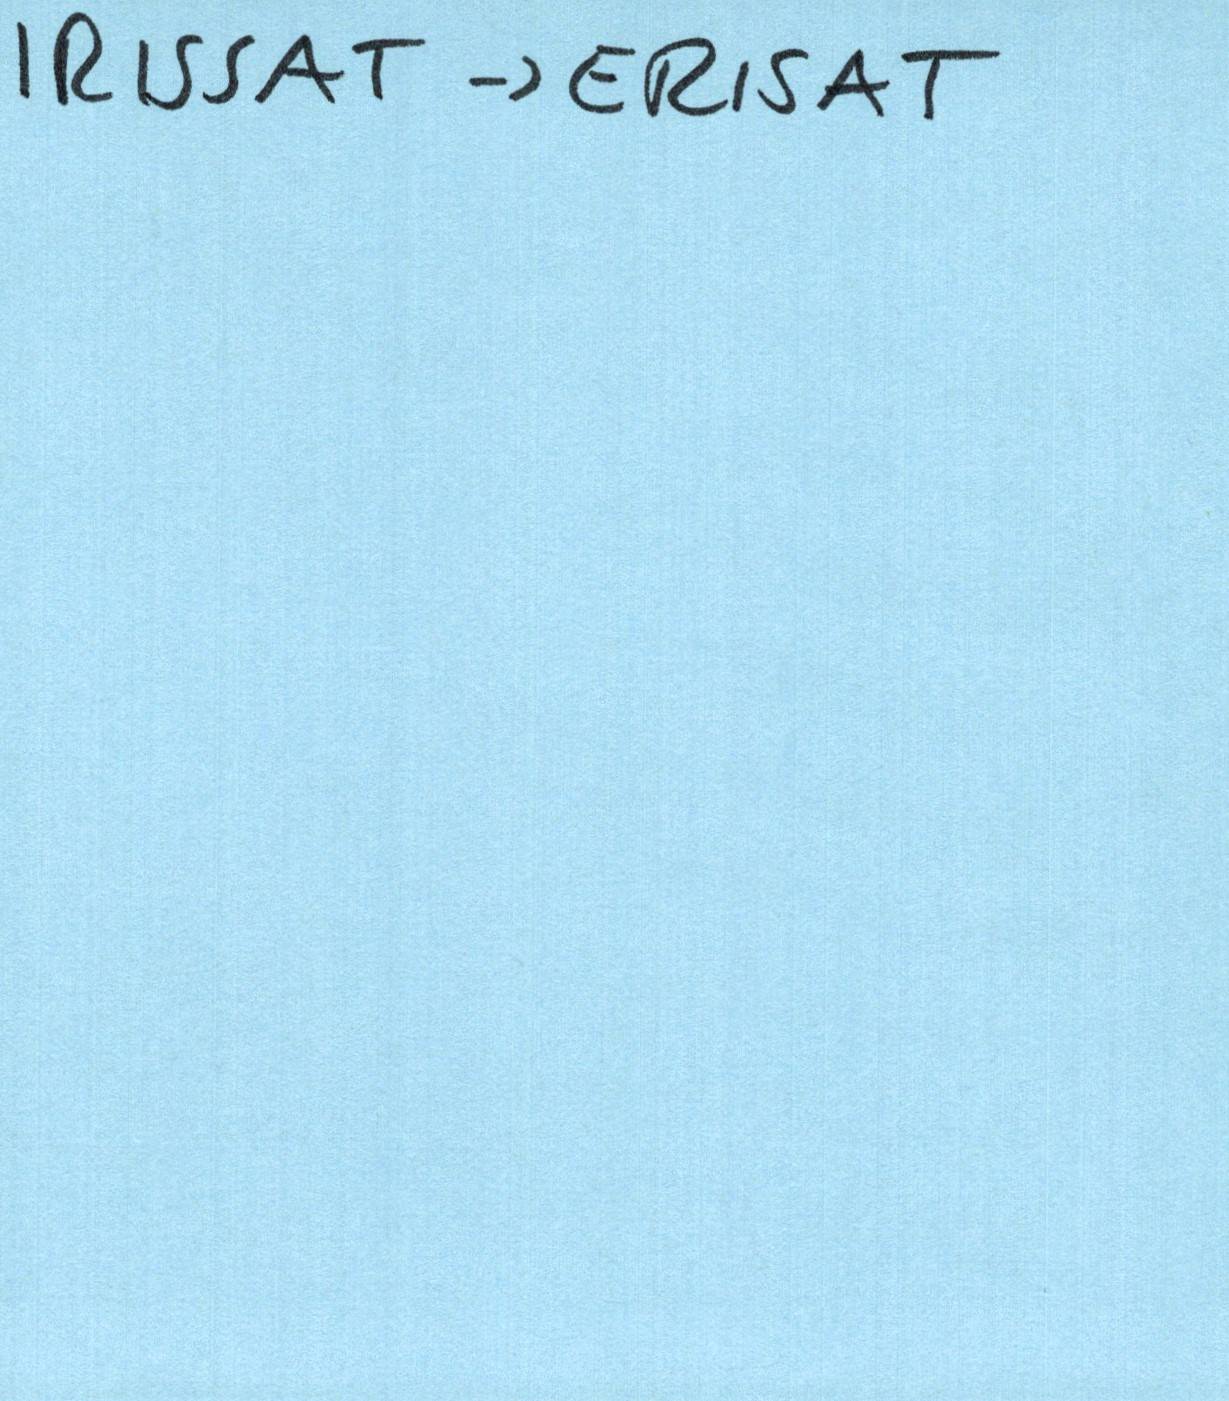 IRISSAT -> ERISAT